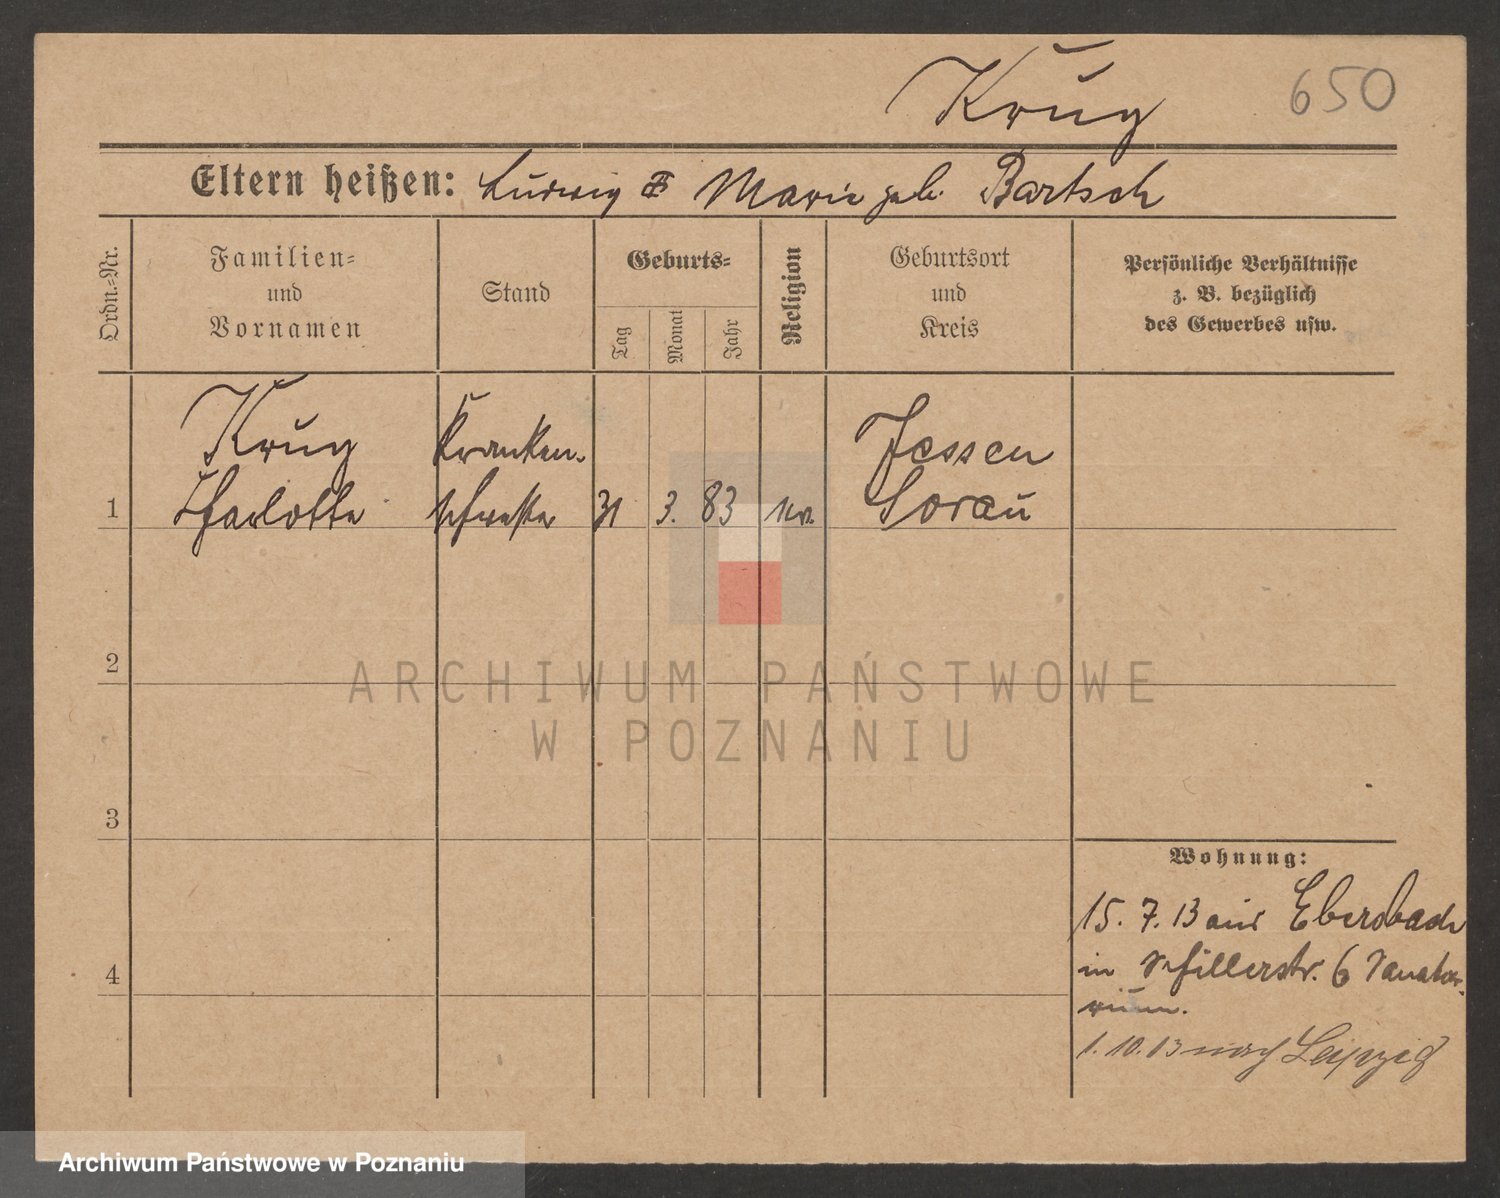 Krug
650
Eltern heißen: Ludwig & Marie geb. Bartsch
Ordn.-Nr.
Familien-
und
Vornamen
Stand
Geburts-
Tag
Monat
Jahr
Religion
Geburtsort
und
Kreis
Persönliche Verhältnisse
z. B. bezüglich
des Gewerbes usw.
1
Krug
Charlotte
Kranken-
schwester
31
3.
83
ev.
Jessen
Sorau
2
3
4
Wohnung:
15. 7. 13 aus Ebersbach
in Schillerstr. 6 Sanato-
rium.
1. 10. 13 nach Leipzig
ARCHIWUM PAŃSTWOWE
W POZNANIU
Archiwum Państwowe w Poznaniu